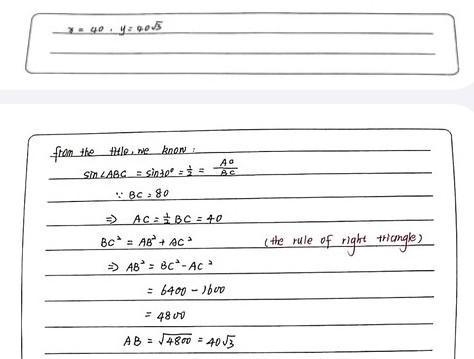 x = 40, y = 40√3
from the title, we know:
sin∠ABC = sin30° = 1/2 = AC/BC
∵ BC = 80
⇒ AC = 1/2 BC = 40
BC² = AB² + AC² (the rule of right triangle)
⇒ AB² = BC² - AC²
= 6400 - 1600
= 4800
AB = √4800 = 40√3